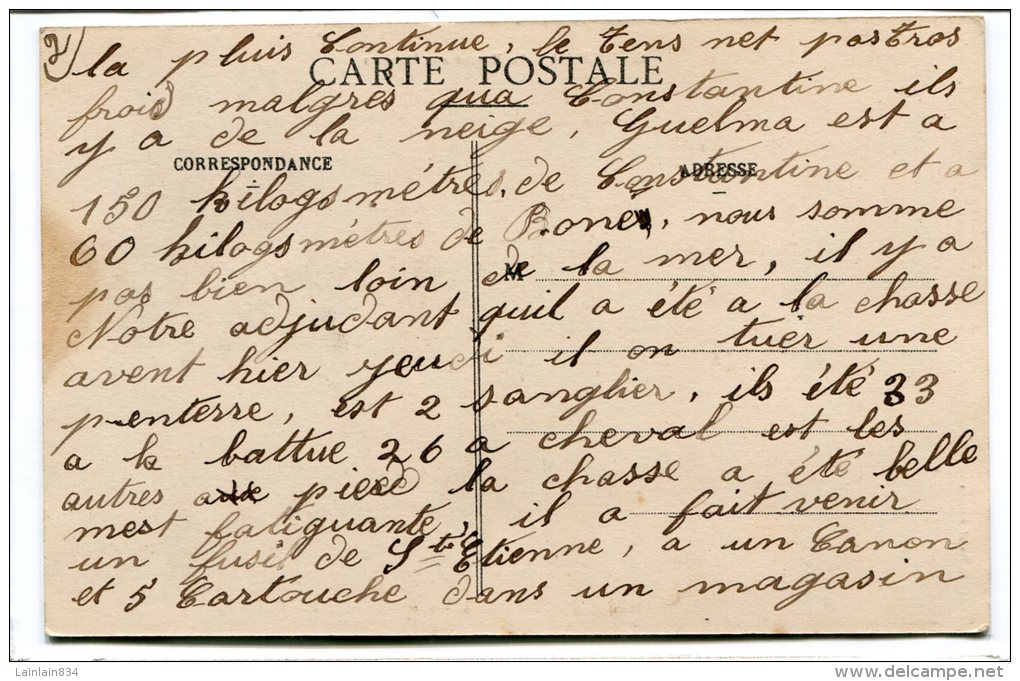 2)
la pluis Continue, le tens net pas tros
CARTE POSTALE
froid malgres qua Constantine ils
y a de la neige, Guelma est a
CORRESPONDANCE ADRESSE
150 kilogsmétres, de Constantine et a
60 kilogsmétres de Bone, nous somme
M
pas bien loin de la mer, il y a
Notre adjudant quil a été a la chasse
avent hier jeudi il on tuer une
penterre, est 2 sanglier, ils été 33
a la battue 26 a cheval est les
autres a pieed la chasse a été belle
mest fatiguante, il a fait venir
un fusil de St Etienne, a un Canon
et 5 Cartouche dans un magasin
Lainlain834
www.delcampe.net